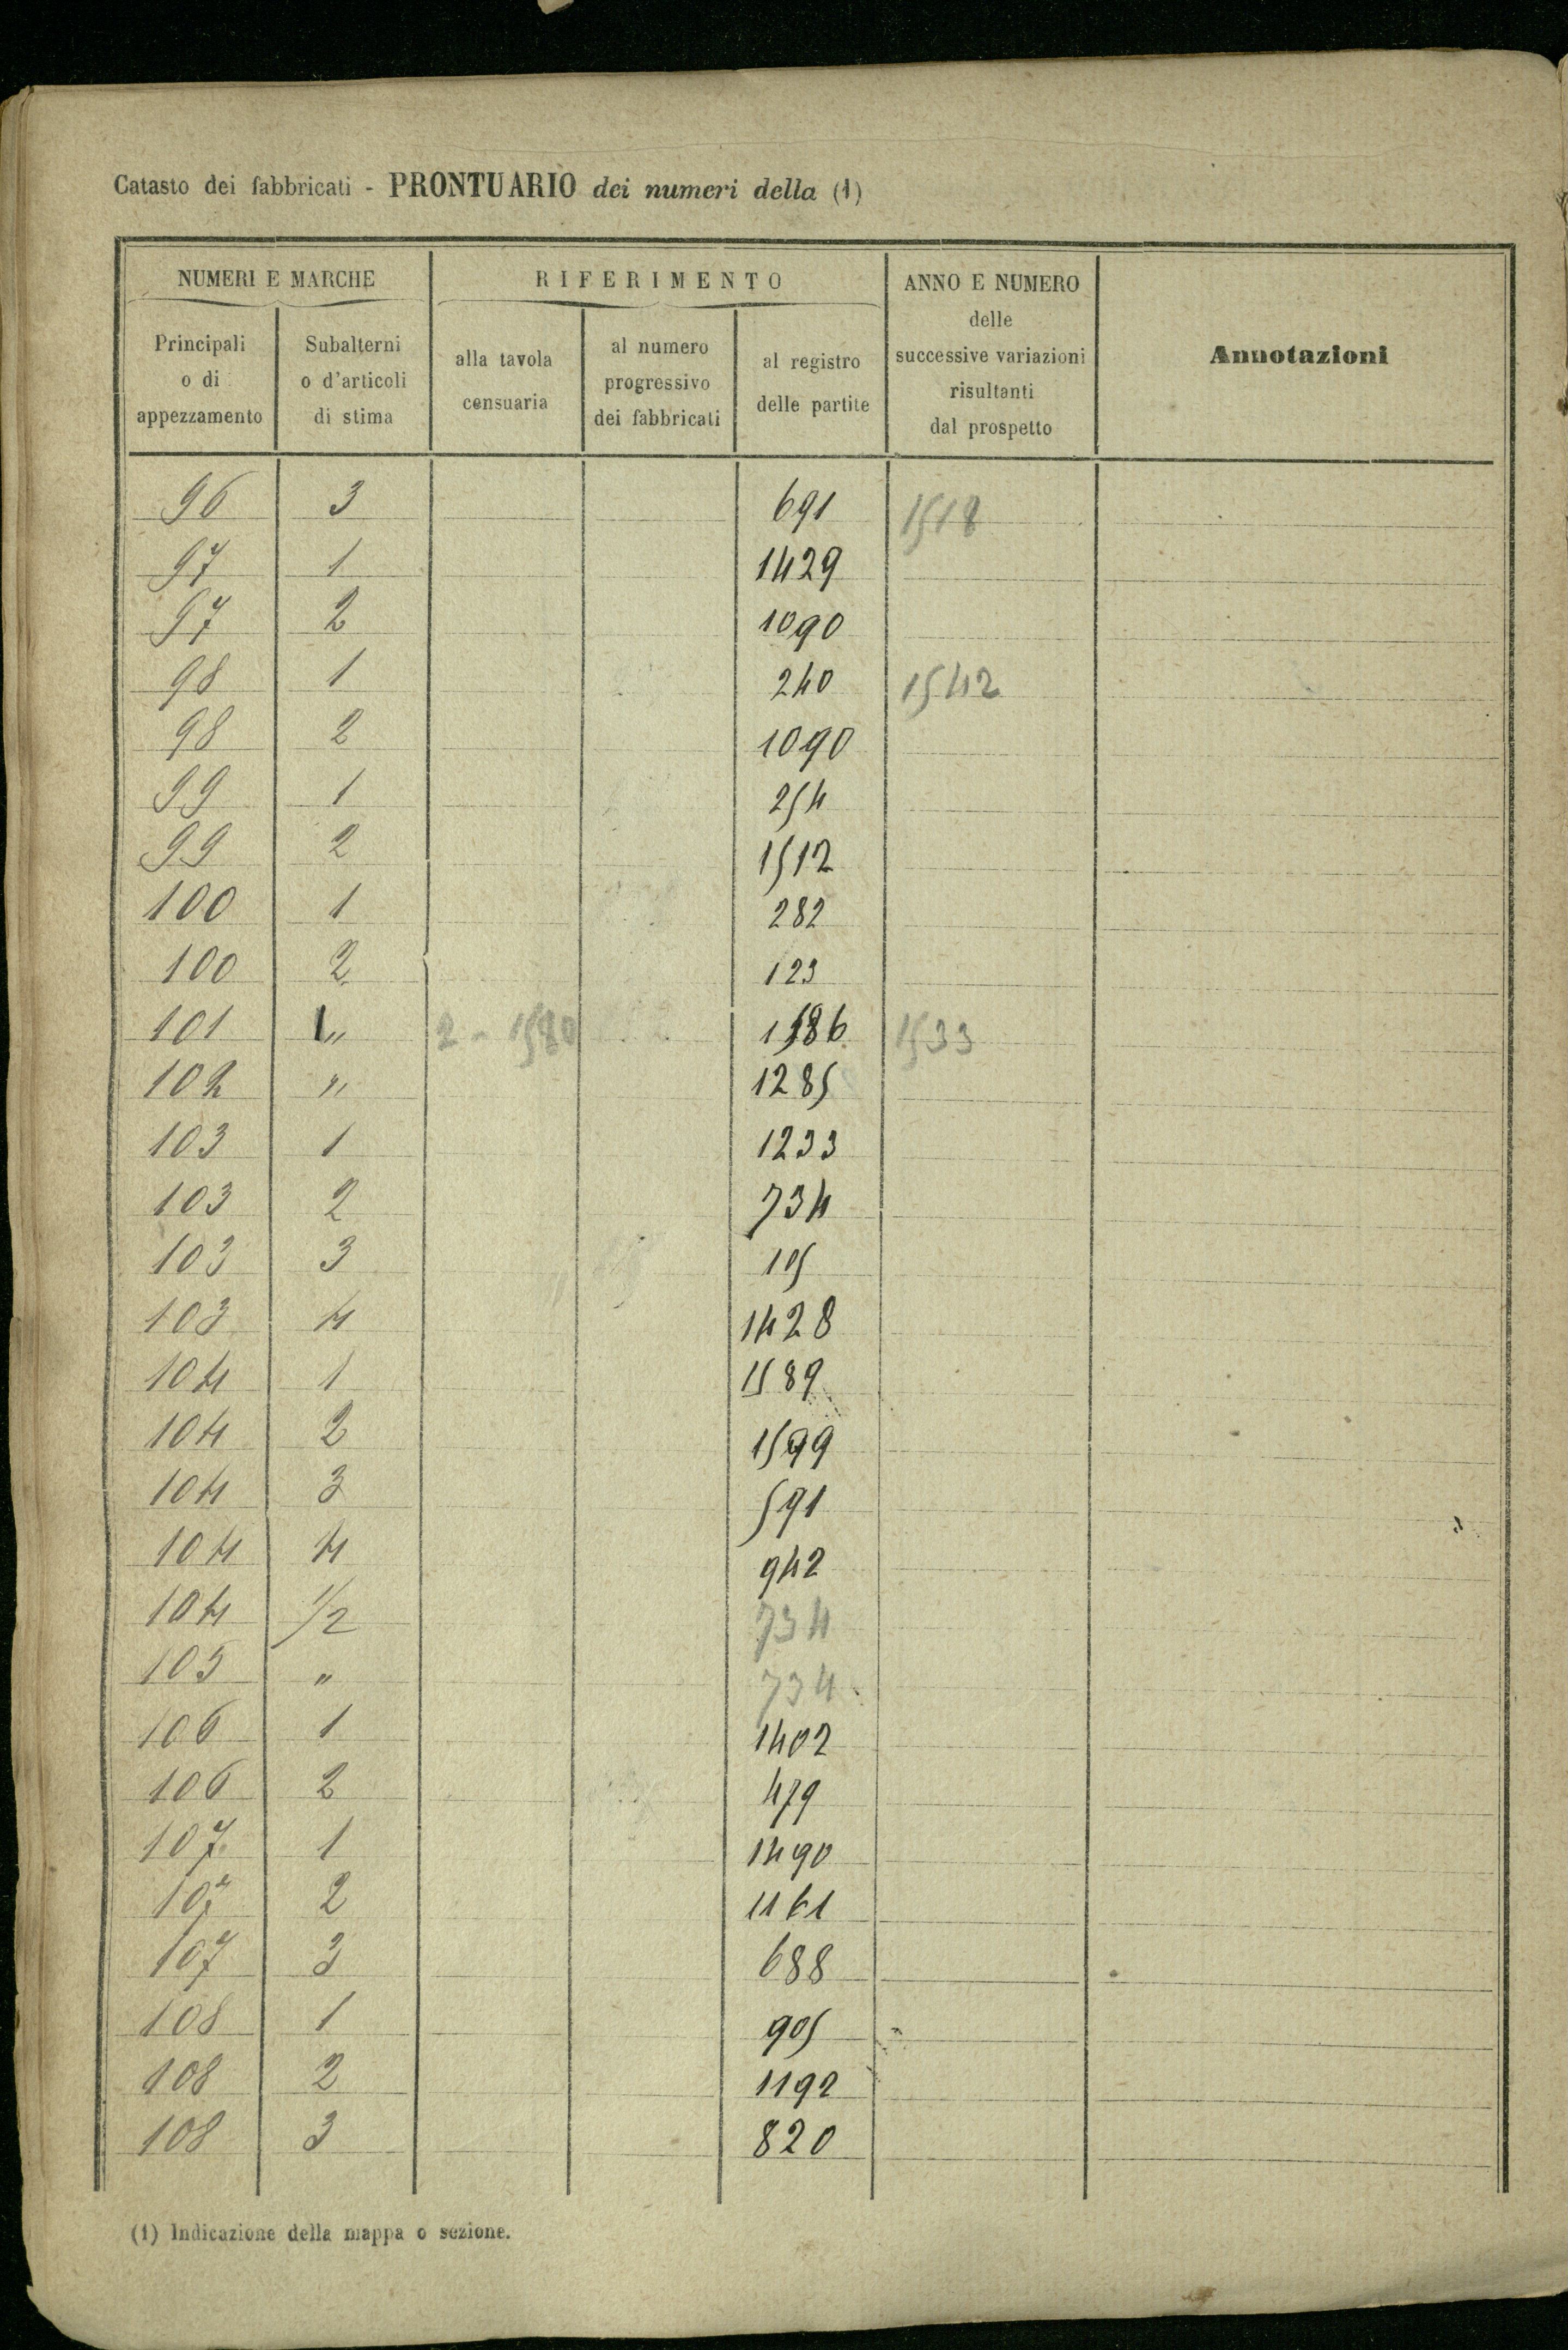 Catasto dei fabbricati - PRONTUARIO dei numeri della (1)
NUMERI E MARCHE RIFERIMENTO ANNO E NUMERO delle successive variazioni risultanti dal prospetto Annotazioni
Principali o di appezzamento Subalterni o d'articoli di stima alla tavola censuaria al numero progressivo dei fabbricati al registro delle partite
96 3 691 1518
97 1 1429
97 2 1090
98 1 240 1542
98 2 1090
99 1 254
99 2 1512
100 1 282
100 2 123
101 1 „ 2 - 1580 1586 1533
102 „ 1285
103 1 1233
103 2 734
103 3 105
103 4 1428
104 1 1589
104 2 1599
104 3 591
104 4 942
104 1/2 734
105 „ 734
106 1 1402
106 2 479
107 1 1490
107 2 1161
107 3 688
108 1 905
108 2 1192
108 3 820
(1) Indicazione della mappa o sezione.